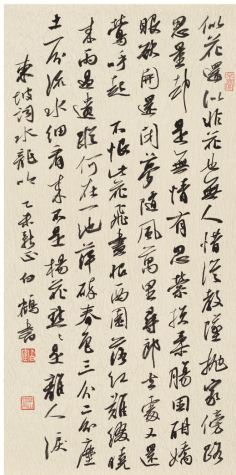 似花還似非花也無人惜從教墜抛家傍路
思量却是無情有思縈損柔腸困酣嬌
眼欲開還闭夢隨風萬里尋郎去處又還
鶯呼起不恨此花飛盡恨西園落紅難綴曉
来雨過遺蹤何在一池萍碎春色三分二分塵
土一分流水細看来不是楊花點點是離人淚
東坡詞水龍吟乙未新正白鶴書